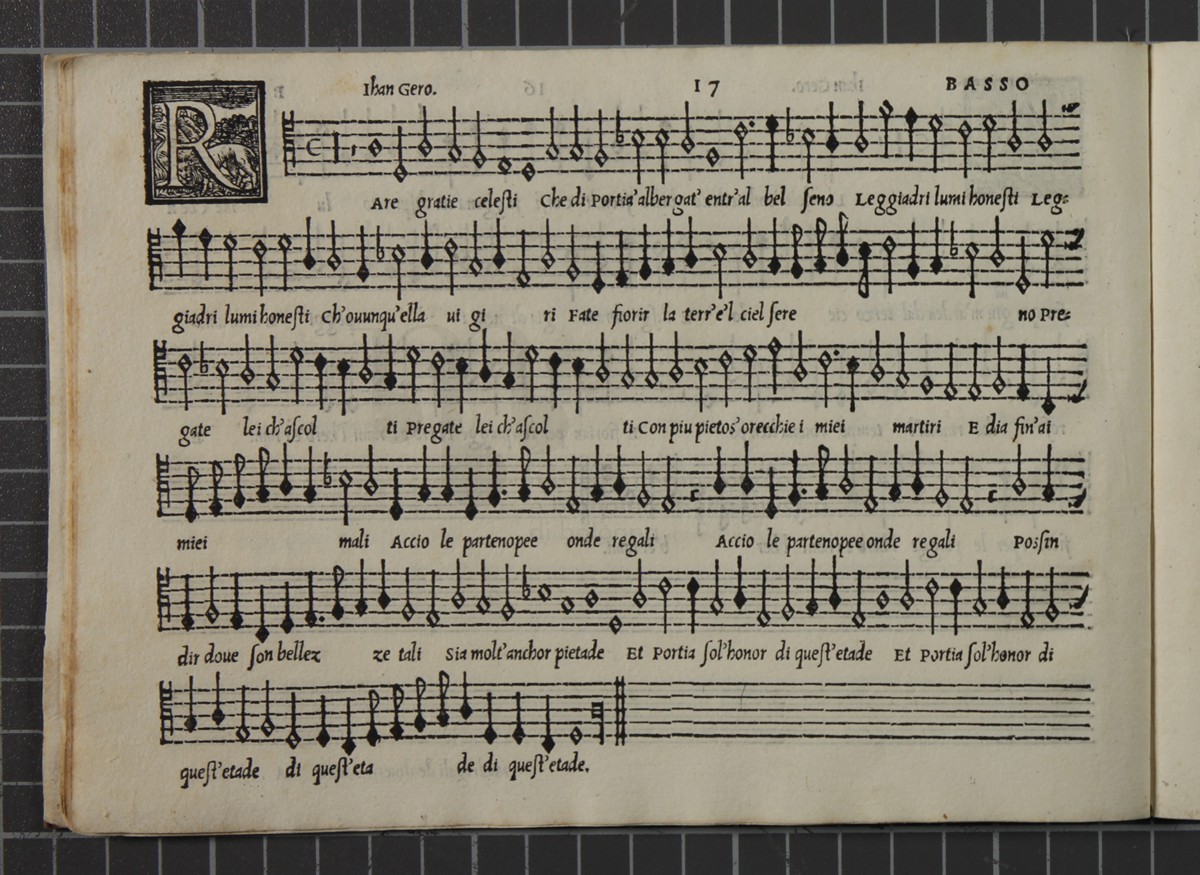 Ihan Gero. 17 BASSO
RAre gratie celesti Che di Portia'albergat' entr'al bel seno Leggiadri lumi honesti Leg-
giadri lumi honesti Ch'ouunqu'ella ui gi ri Fate fiorir la terr'e'l ciel sere no Pre-
gate lei ch'ascol ti Pregate lei ch'ascol ti Con piu pietos'orecchie i miei martiri E dia fin'ai
miei mali Accio le partenopee onde regali Accio le partenopee onde regali Possin
dir doue son bellez ze tali Sia molt'anchor pietade Et Portia sol'honor di quest'etade Et Portia sol'honor di
quest'etade di quest'eta de di quest'etade.